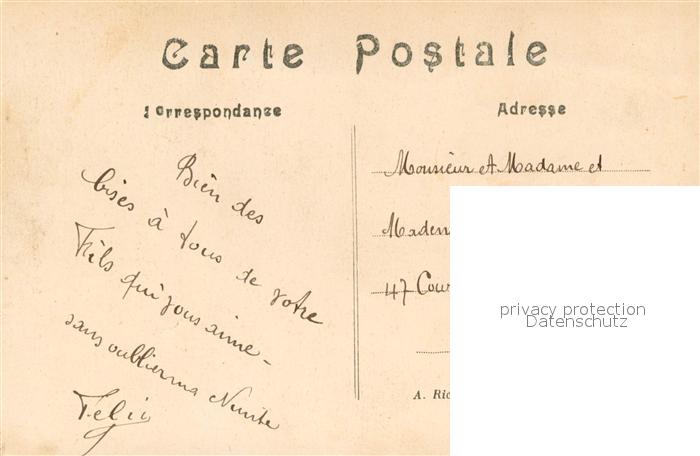 Carte Postale
Correspondance
Adresse
Bien des
bises à tous de votre
Fils qui vous aime -
sans oublier ma
Felix
Monsieur et Madame et
Madem
47 Cour
A. Ric
privacy protection
Datenschutz